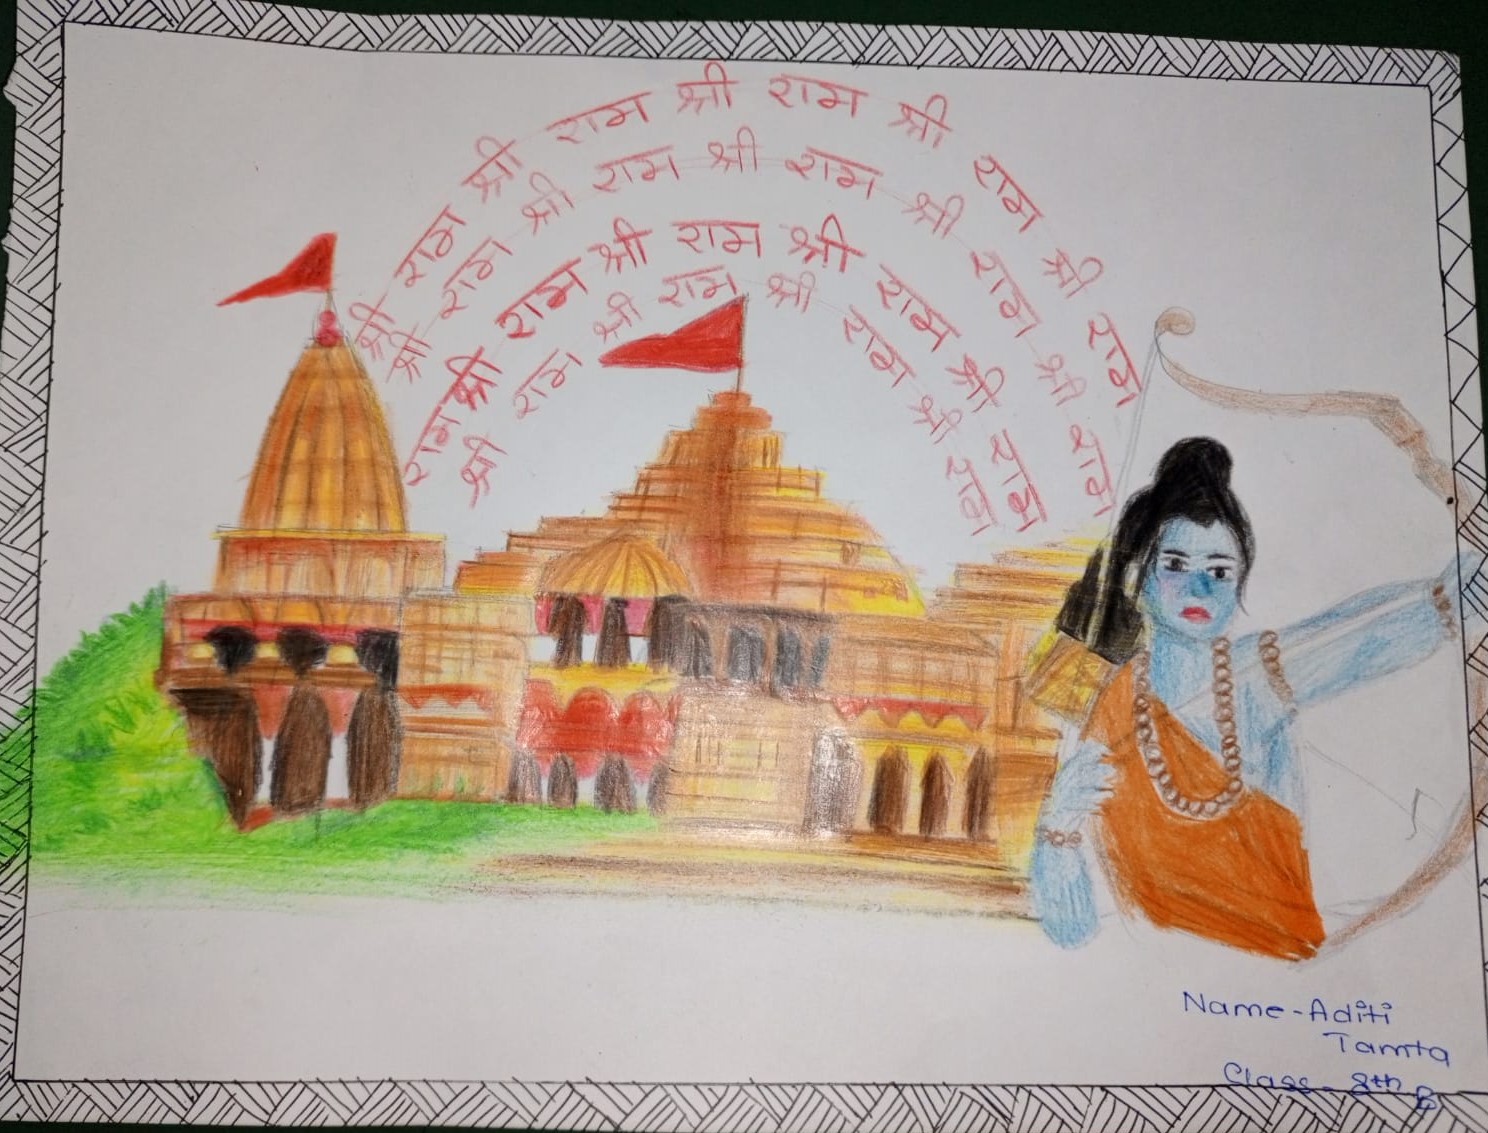 श्री राम श्री राम श्री राम श्री राम श्री राम
श्री राम श्री राम श्री राम श्री राम श्री राम
राम श्री राम श्री राम श्री राम श्री राम
श्री राम श्री राम श्री राम श्री राम
Name-Aditi
Tamta
Class- 8th B